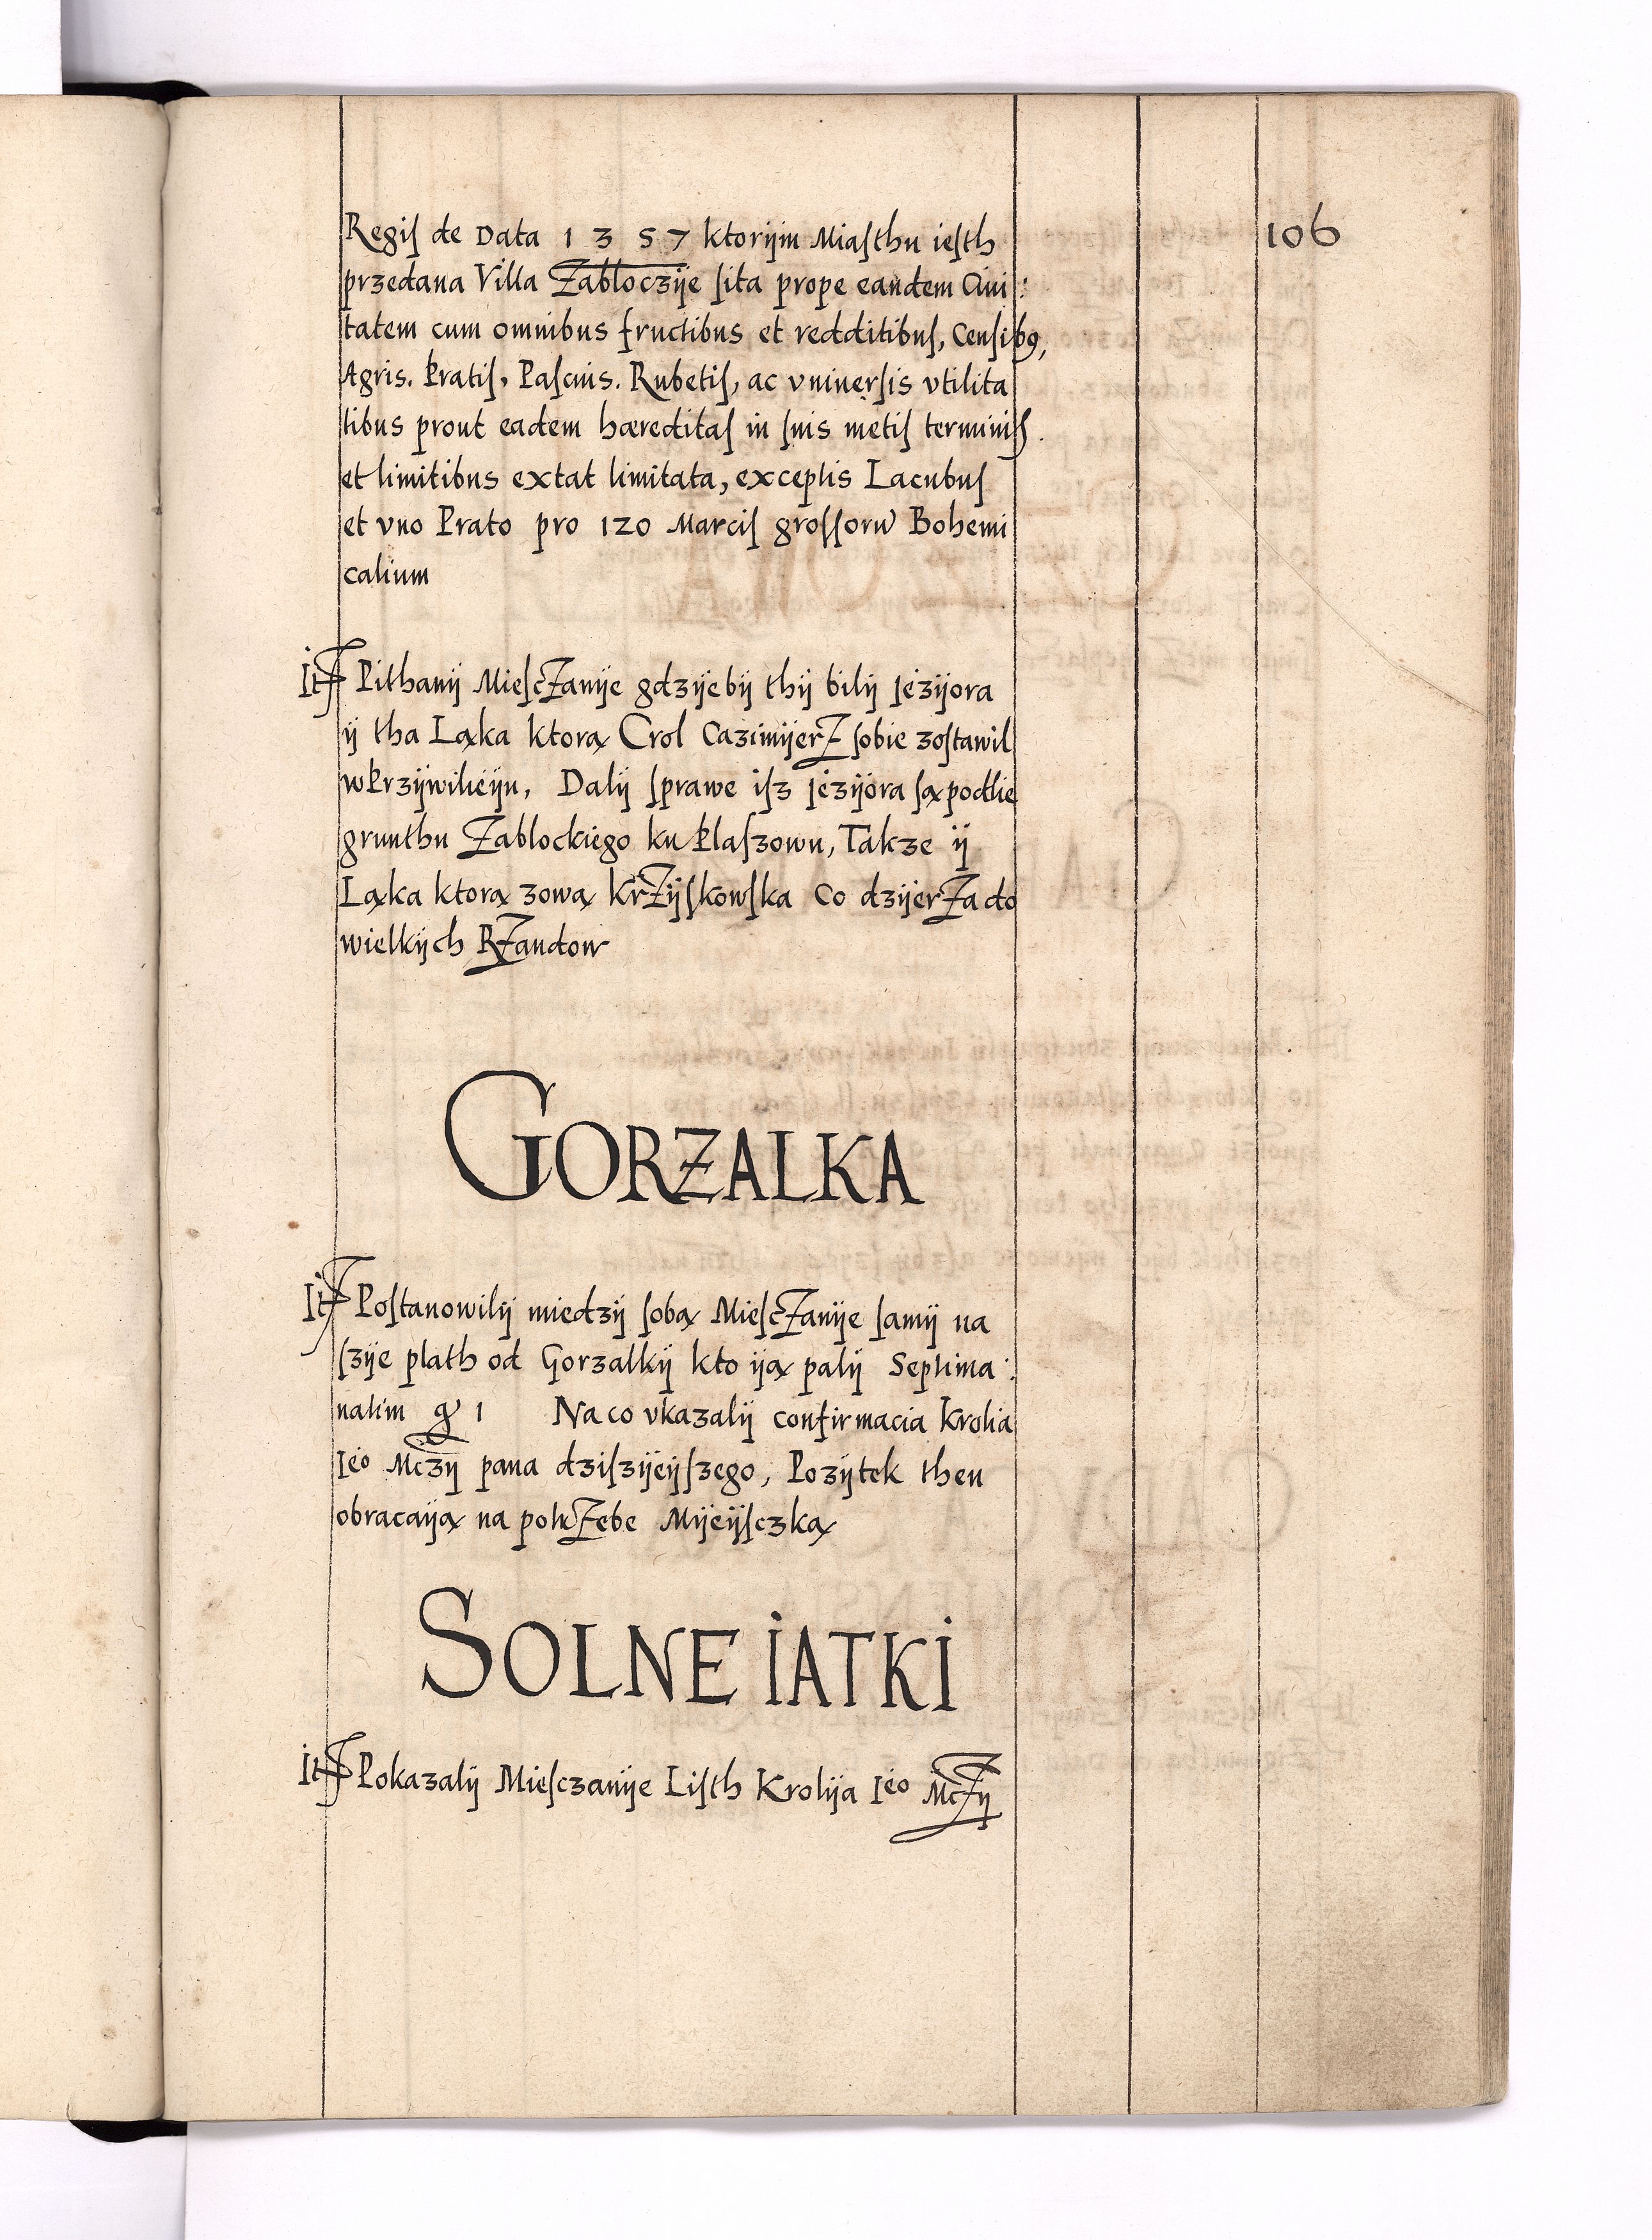 106
Regiſ de Data 1 3 5 7 ktorÿm Miaſthu ieſth
przedana Villa Zabloczÿe ſita prope eandem Ciui:
tatem cum omnibus fructibus et redditibuſ, Cenſibꝯ,
Agris. Pratiſ, Paſcuis. Rubetiſ, ac vniuerſis vtilita
tibus prout eadem hæreditaſ in ſuis metiſ terminiſ.
et limitibus extat limitata, exceptis Lacubuſ
et vno Prato pro 120 Marciſ groſſorū Bohemi
calium
It Pithanÿ MieſcZanÿe gdzÿebÿ thÿ bilÿ Jezÿora
ÿ tha Ląka ktorą Crol CazimÿerZ ſobie zoſtawil
wPrzÿwilieÿu, Dalÿ ſprawe iſz Jezÿora ſą podlie
grunthu Zablockiego ku Plaſzowu, Takze ÿ
Ląka ktorą zową KrZÿſkowſka Co dzÿerZa do
wielkÿch RZandow
GORZALKA
It Poſtanowilÿ miedzÿ ſobą MieſcZanÿe ſamÿ na
ſzÿe plath od Gorzalkÿ kto ÿą palÿ Septima:
natim gͬ 1 Na co vkazalÿ confirmacia Krolia
Ieo Mczÿ pana dziſzÿeÿſzego, Pozÿtek then
obracaÿą na potrZebe Mÿeÿſczką
SOLNE IATKI
It Pokazalÿ Mieſczanÿe Liſth Krolÿa Ieo McZÿ